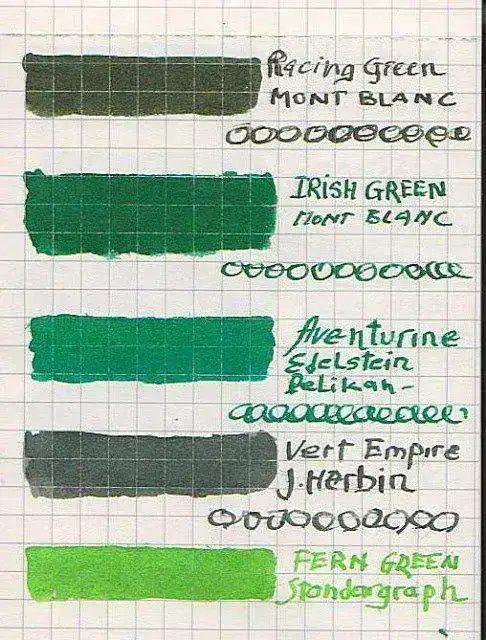 Racing Green
MONT BLANC
IRISH GREEN
MONT BLANC
Aventurine
Edelstein
Pelikan -
Vert Empire
J. Herbin
FERN GREEN
Standargraph